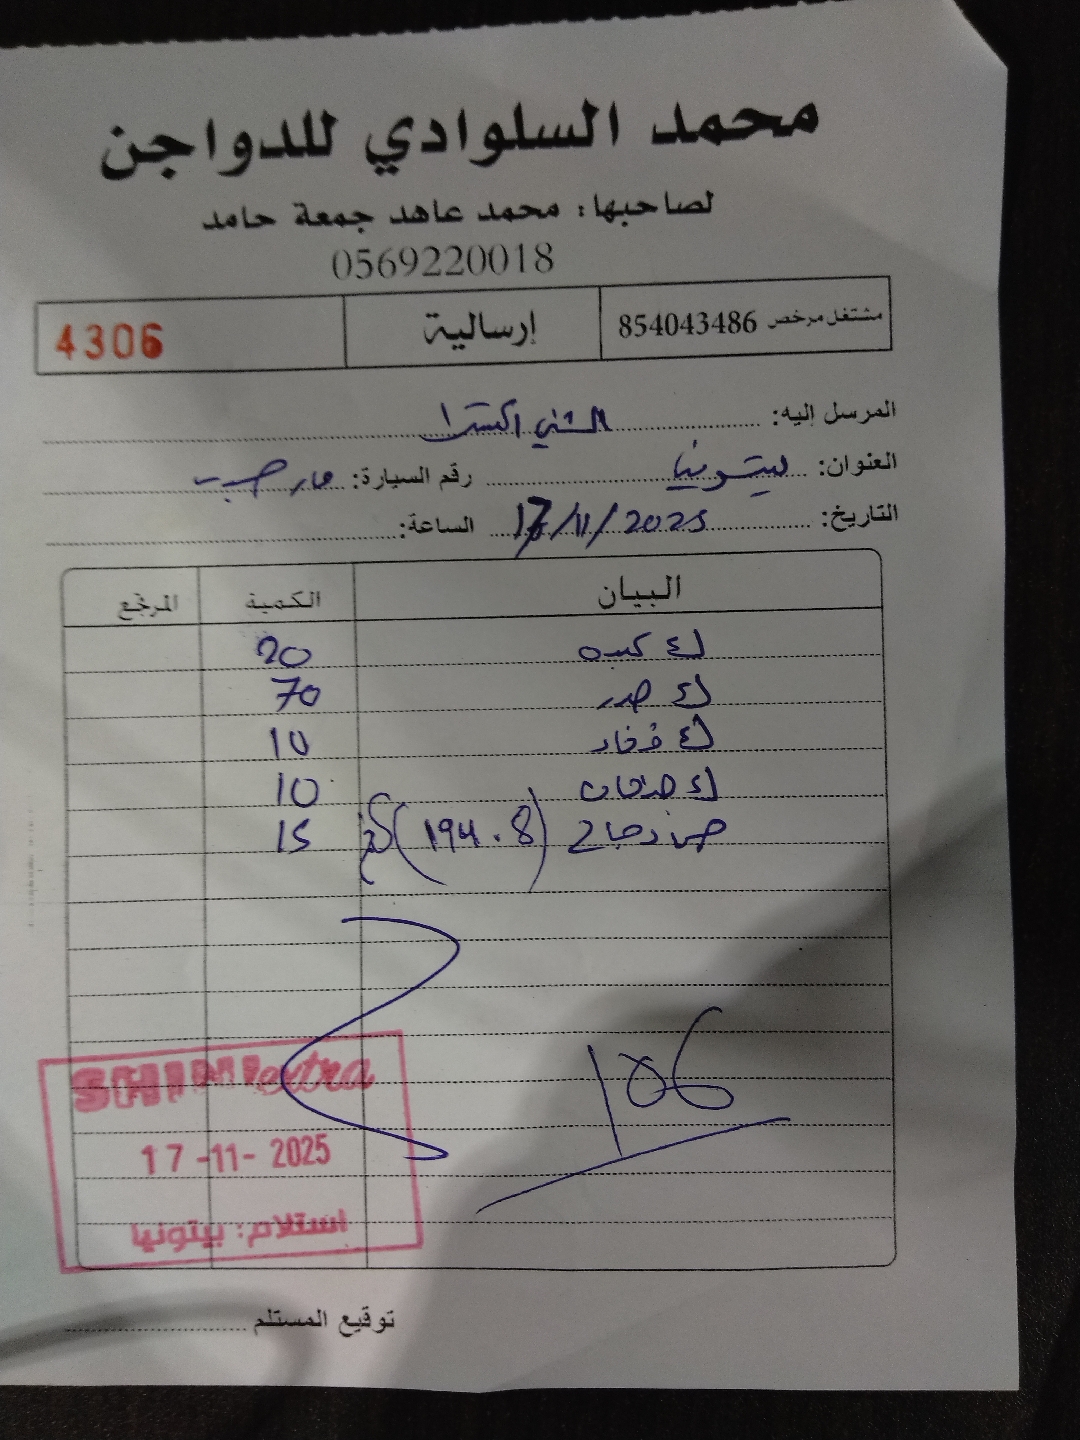 محمد السلوادي للدواجن
لصاحبها: محمد عاهد جمعة حامد
0569220018
مشتغل مرخص 854043486 إرسالية 4306
المرسل إليه: الشني اكسترا
العنوان: بيتونيا رقم السيارة:
التاريخ: 17/11/2025 الساعة:
البيان الكمية المرتجع
ك كبده 20
ك صدر 70
ك فخاد 10
ك 10
دجاج (194.8) 15
106
SHINI extra
17-11-2025
استلام: بيتونيا
توقيع المستلم